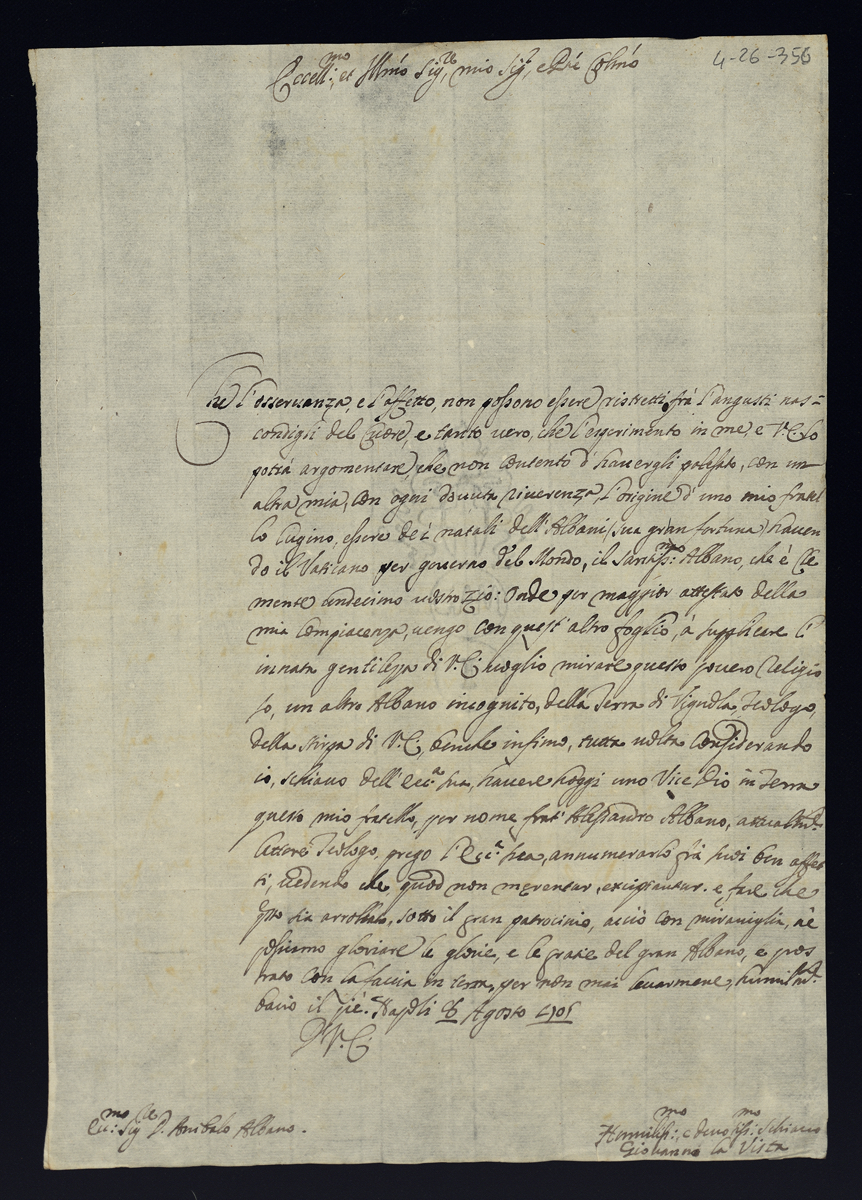 4-26-356
Eccell:mo et Illmo Sigre, mio Sigr, e Pne Colmo
Che l'osseruanza, e l'affetto, non possono essere ristretti frà l'angusti nas=
condigli del Cuore, e tanto uero, che l'esperimento in me, e V.E. lo
potrà argomentare, che non contento d'hauergli palesato, con un
altra mia, con ogni douuta riuerenza, l'origine d'uno mio fratel
lo Cugino, essere de i natali dell'Albani (sua gran fortuna) hauen
do il Vaticano per gouerno del Mondo, il Santiss:mo Albano, che è Cle
mente undecimo uostro Zio: Onde per maggior attestato della
mia Compiacenza, uengo con quest'altro foglio, à supplicare l'
innata gentilezza di V.E: uoglio mirare questo pouero Religio
so, un altro Albano incognito, della Terra di Vignola, Teologo,
della stirpa di V.E, benche infimo, tutta uolta Considerando
io, schiauo dell'ecc.a sua, hauere hoggi uno Vice Dio in Terra
questo mio fratello, per nome frat'Alessandro Albano, attualmte
lettore Teologo, prego l'Ecc.a sua, annumerarlo frà suoi ben affet
ti, credendo che, quod non merentur, excipiantur. e fare che
questo sia arrollato, sotto il gran patrocinio, acciò con merauiglia, ne
possiamo gloriare le glorie, e le gratie del gran Albano, e pros
trato con la faccia in terra, per non mai leuarmene, humilmte
bacio il piè. Napoli 8 Agosto 1701
D V.E.
Ecc:mo Sigre D. Anibalo Albano.
Humiliss:mo, e deuotiss:mo schiauo
Giouanne la Vista